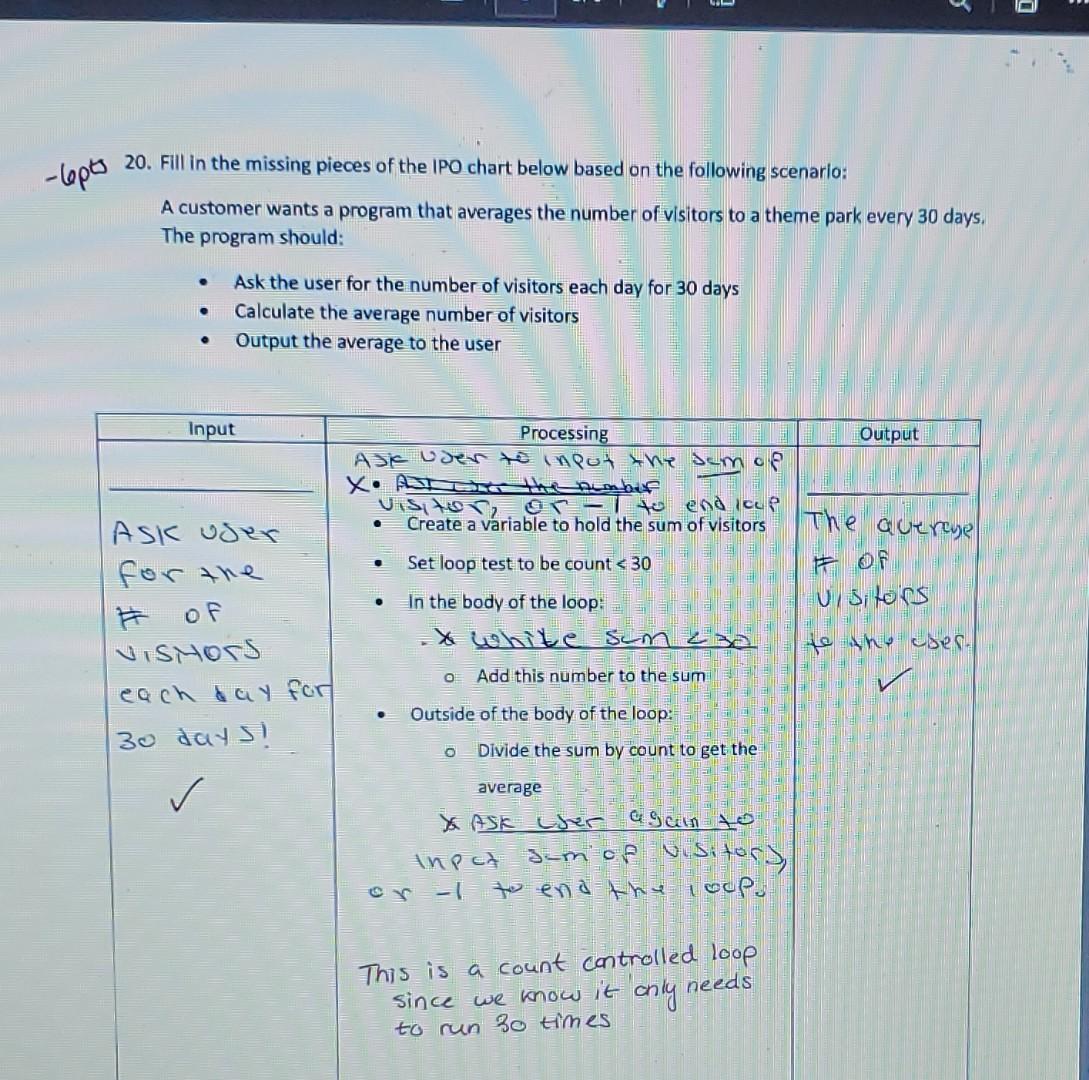 -6pts
20. Fill in the missing pieces of the IPO chart below based on the following scenario:
A customer wants a program that averages the number of visitors to a theme park every 30 days.
The program should:
• Ask the user for the number of visitors each day for 30 days
• Calculate the average number of visitors
• Output the average to the user
Input
Ask user
for the
# of
visitors
each day for
30 days!
✓
Processing
Ask user to input the sum of
X • Ask user the number
visitors, or -1 to end loop
• Create a variable to hold the sum of visitors
• Set loop test to be count < 30
• In the body of the loop:
x while sum < 30
o Add this number to the sum
• Outside of the body of the loop:
o Divide the sum by count to get the
average
x Ask user again to
input sum of visitors,
or -1 to end the loop.
This is a count controlled loop
since we know it only needs
to run 30 times
Output
The average
# of
visitors
to the user.
✓